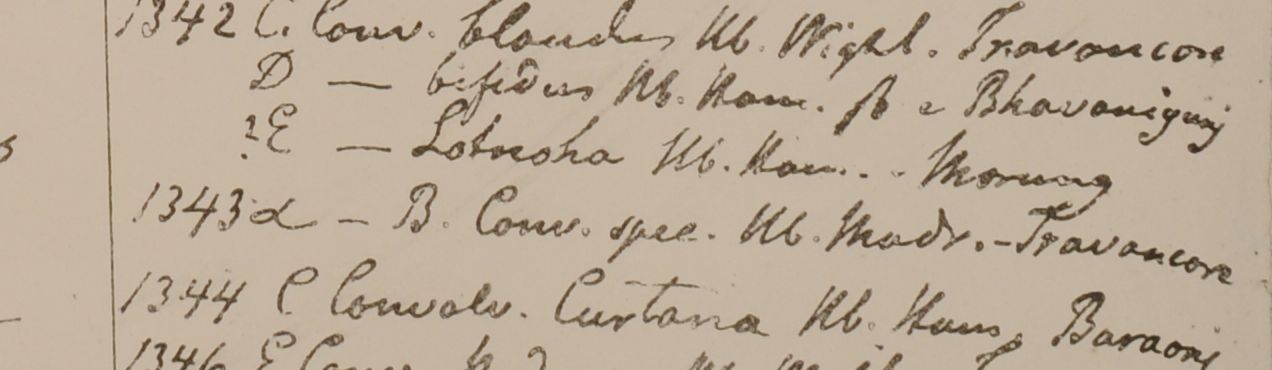 1342 C. Conv. blandus Hb. Wight. Travancore
D — bifidus Hb. Ham. β e Bhavanigunj
?E — Hb. Ham. - Morung
1343 α - B. Conv. spec. Hb. Madr. - Travancore
1344 C Convolv. Curtana Hb. Ham.
1346 E Conv.